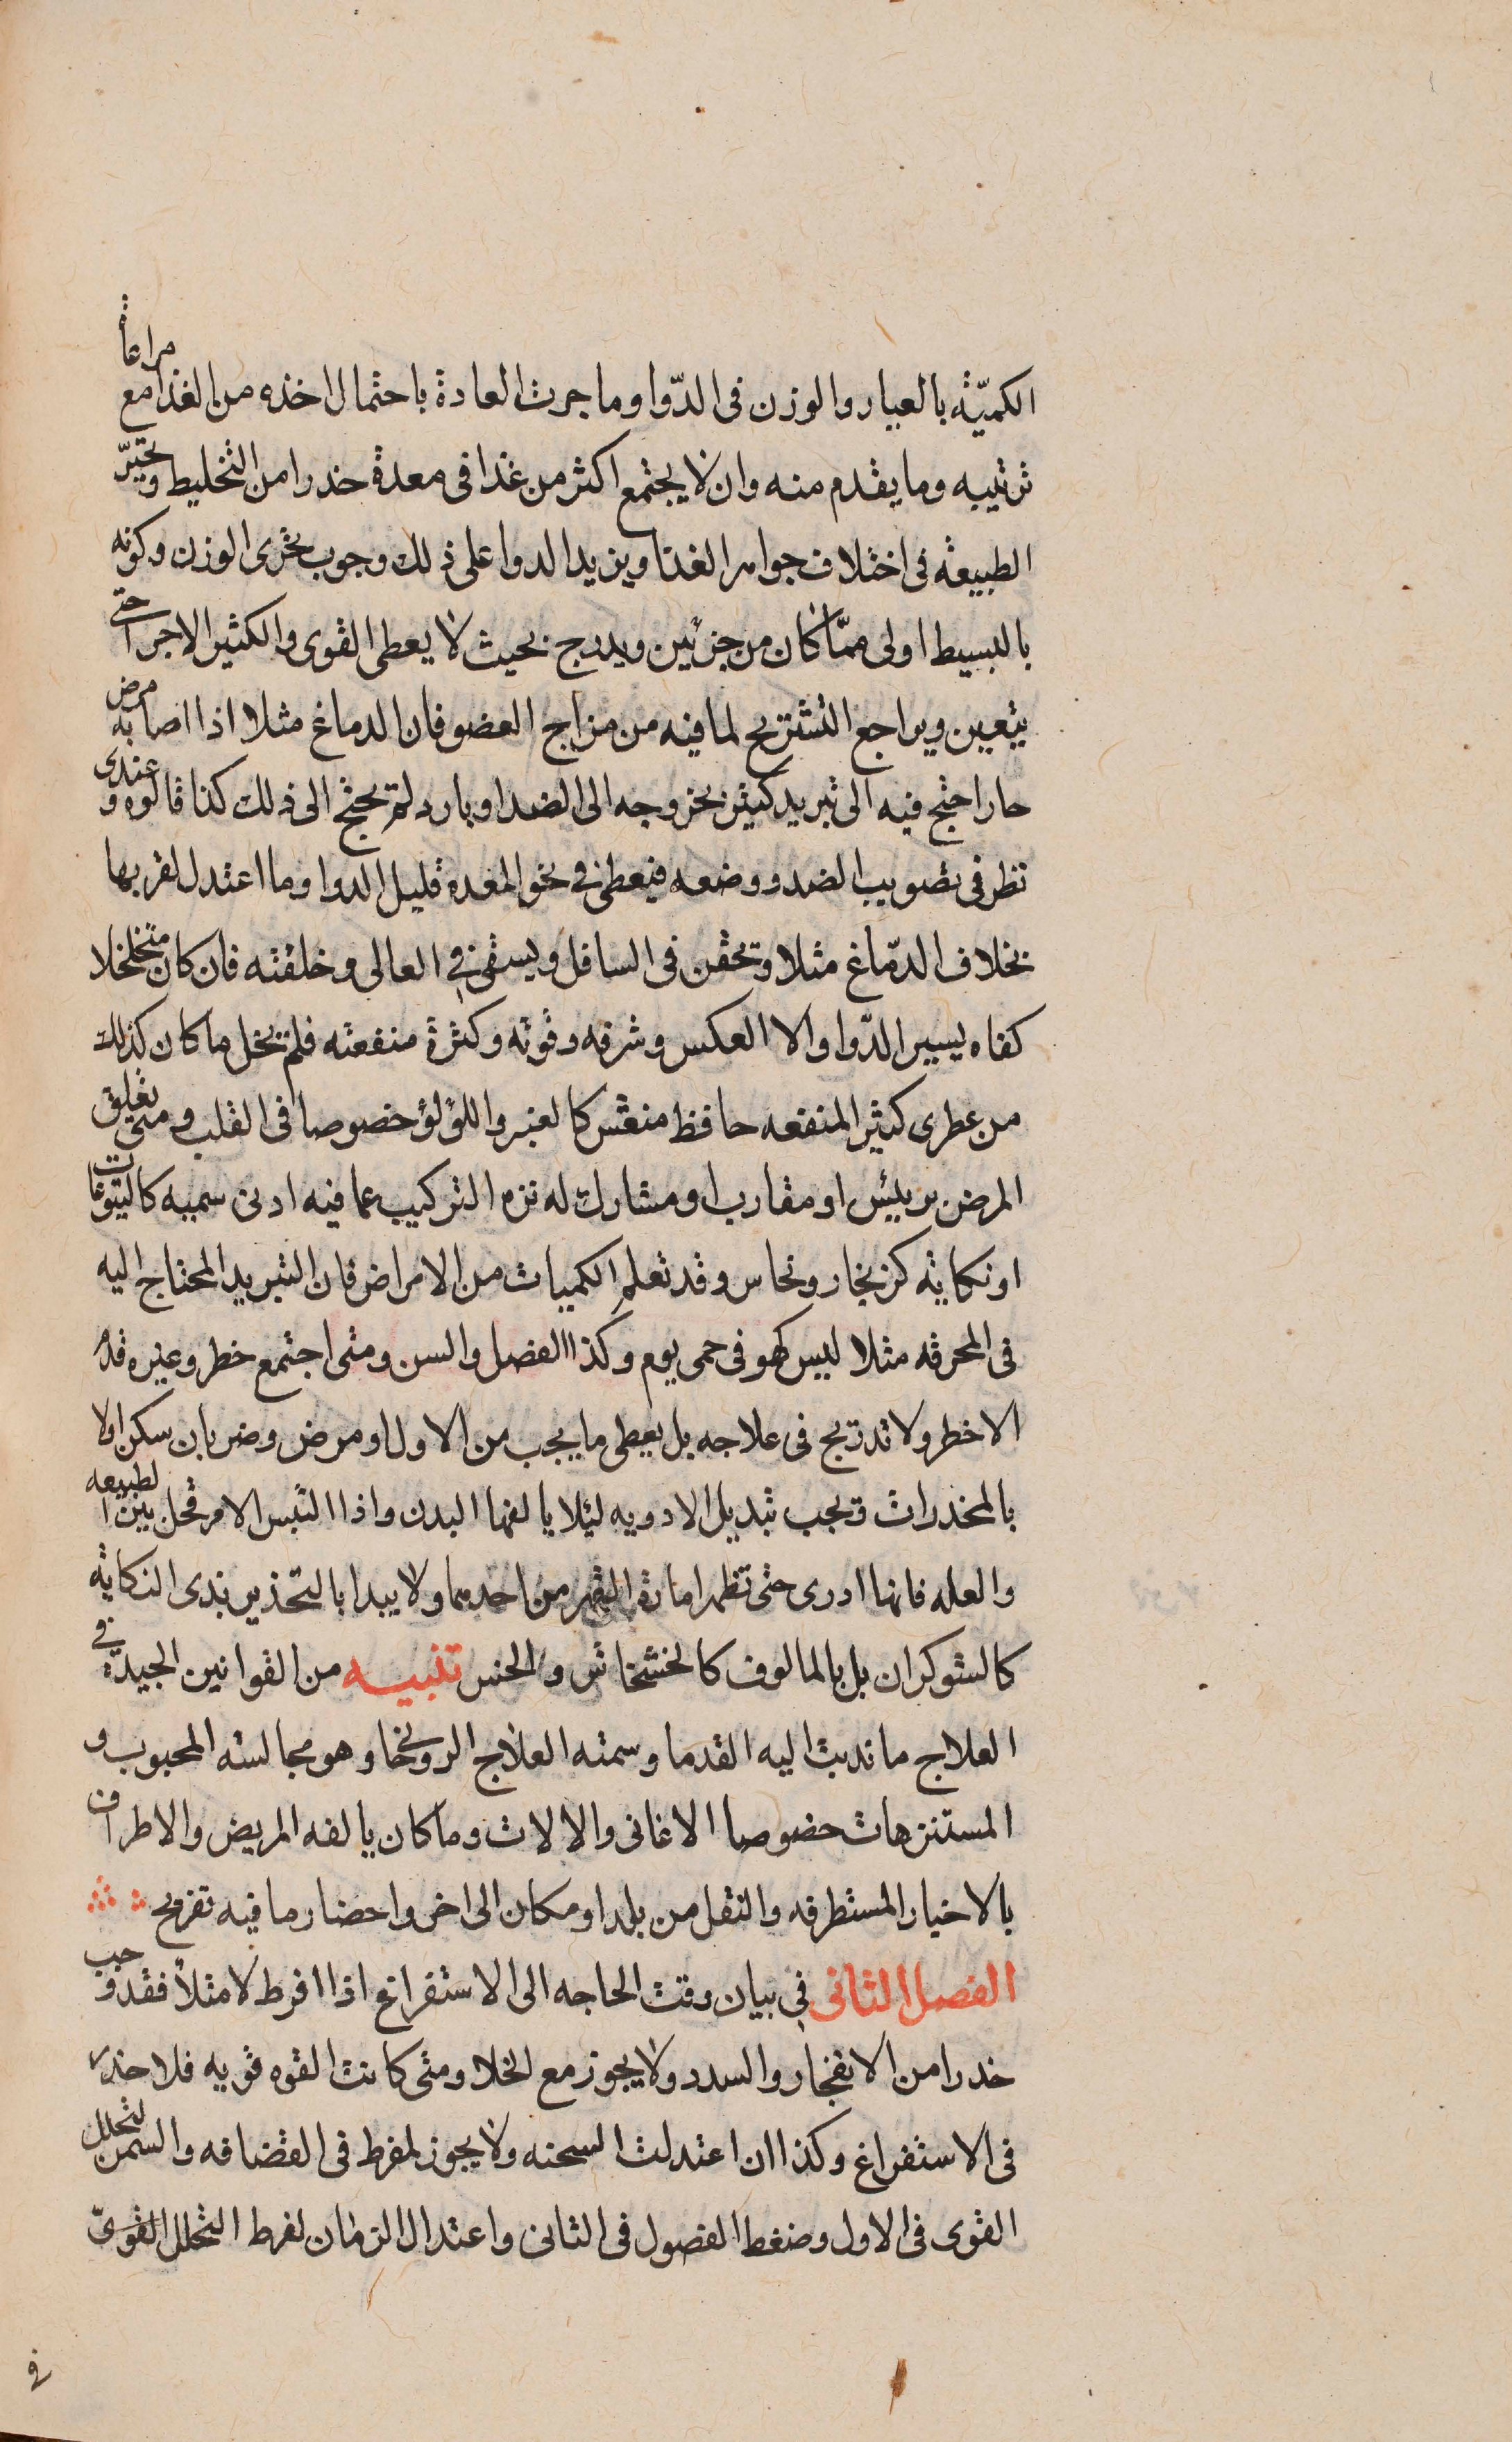 الكميّة بالعيار والوزن فى الدّوا وما جرت العادة باحتمال اخذه من الغذا مع مراعاة
ترتيبه وما يقدم منه وان لا يجتمع اكثر من غذا فى معدة حذرا من التخليط وتحيّر
الطبيعة فى اختلاف جواهر الغذا ويزيد الدوا على ذلك وجوب تحرى الوزن وكونه
بالبسيط اولى ممّا كان من جزئين ويدرج بحيث لا يعطى القوى والكثير الاجزا حتى
يتعين ويراجع التشريح لما فيه من مزاج العضو فان الدماغ مثلا اذا اصابه مرض
حار احتج فيه الى تبريد كثير بخروجه الى الضد او بارد لم يحتج الى ذلك كذا قالوه وعندى
نظر فى تصويب الضد ووضعه فيعطى فى نحو المعدة قليل الدوا وما اعتدل لقربها
بخلاف الدّماغ مثلا وتحقن فى السافل ويسقى فى العالى وخلقته فان كان متخلخلا
كفاه يسير الدّوا والا العكس وشرفه وقوته وكثرة منفعته فلم يخل ما كان كذلك
من عطرى كثير المنفعه حافظ منعش كالعنبر واللؤلؤ خصوصا فى القلب ومتى تعلق
المرض برييس او مقارب او مشارك له نزه التركيب عما فيه ادنى سميه كاليتوعات
او نكاية كزنجار ونحاس وقد تعلم الكميات من الامراض فان التبريد المحتاج اليه
فى المحرقه مثلا ليس كهو فى حمى يوم وكذا الفصل والسن ومتى اجتمع خطر وغيره قدم
الاخطر ولا تدريج فى علاجه بل يعطى ما يجب من الاول او مرض وضربان سكن اولا
بالمخدرات ويجب تبديل الادويه ليلا يالفها البدن واذا التبس الامر فخل بين الطبيعه
والعله فانها ادرى حتى تظهر امارة القهر من احدهما ولا يبدا بالتخدير بذى النكاية
كالشوكران بل بالمالوف كالخشخاش والخس تنبيه من القوانين الجيدة فى
العلاج ما ندبت اليه القدما وسمته العلاج الروحانى وهو مجالسة المحبوب و
المستنزهات خصوصا الاغانى والالات وما كان يالفه المريض والاطراف
بالاخبار المستظرفه والنقل من بلد او مكان الى اخر واحضار ما فيه تفريح
الفصل الثانى فى بيان وقت الحاجه الى الاستفراغ اذا افرط لامثلا فقد وجب
حذرا من الانفجار والسدد ولا يجوز مع الخلا ومتى كانت القوه قويه فلا حذر
فى الاستفراغ وكذا ان اعتدلت السحنه ولا يجوز لمفرط فى القضافه والسمن لتحلل
القوى فى الاول وضغط الفصول فى الثانى واعتدال الزمان لفرط التحلل القوى